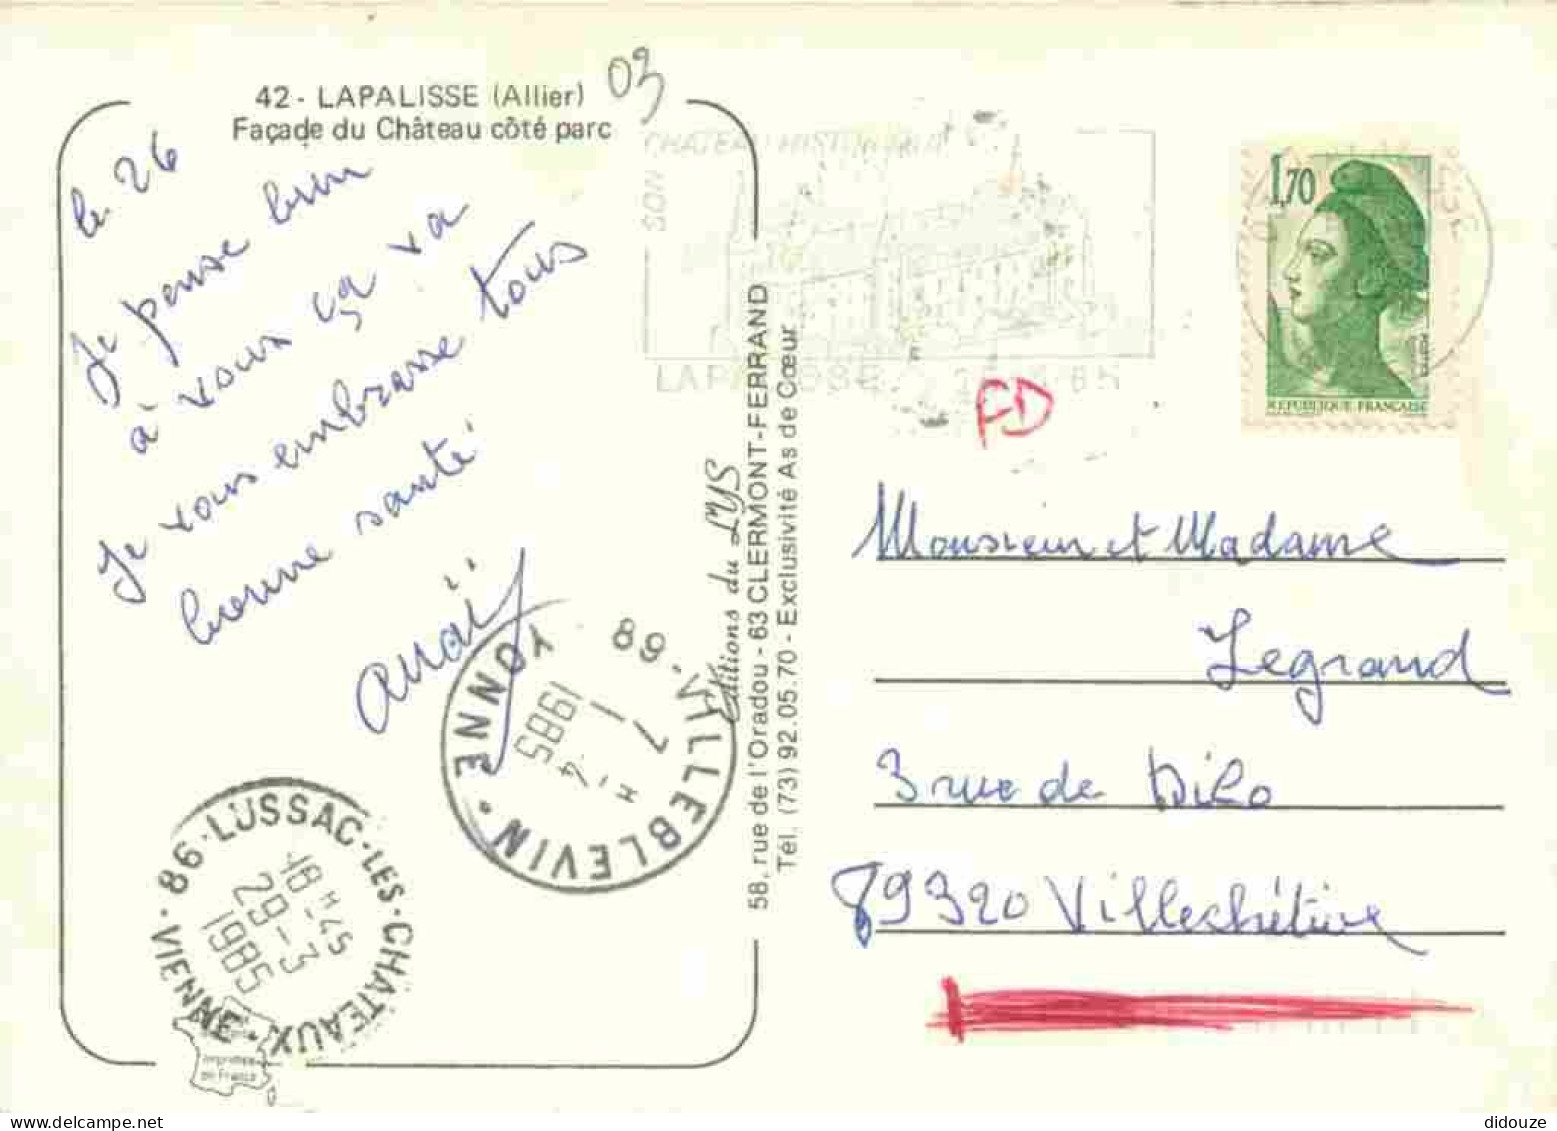 42 - LAPALISSE (Allier)
Façade du Château côté parc
03
le 26
Je pense bien
à vous ça va
Je vous embrasse tous
bonne santé
Anaïs
SON CHATEAU HISTORIQUE
LAPALISSE
1,70
POSTES
REPUBLIQUE FRANÇAISE
FD
Editions du LYS
58, rue de l'Oradou - 63 CLERMONT-FERRAND
Tél. (73) 92.05.70 - Exclusivité As de Cœur
89 - VILLEBLEVIN • YONNE
17 H
-4
1985
86 - LUSSAC-LES-CHATEAUX • VIENNE
18 H 45
29-3
1985
Imprimé
en France
Monsieur et Madame
Legrand
3 rue de Dilo
89320 Villechétive
didouze